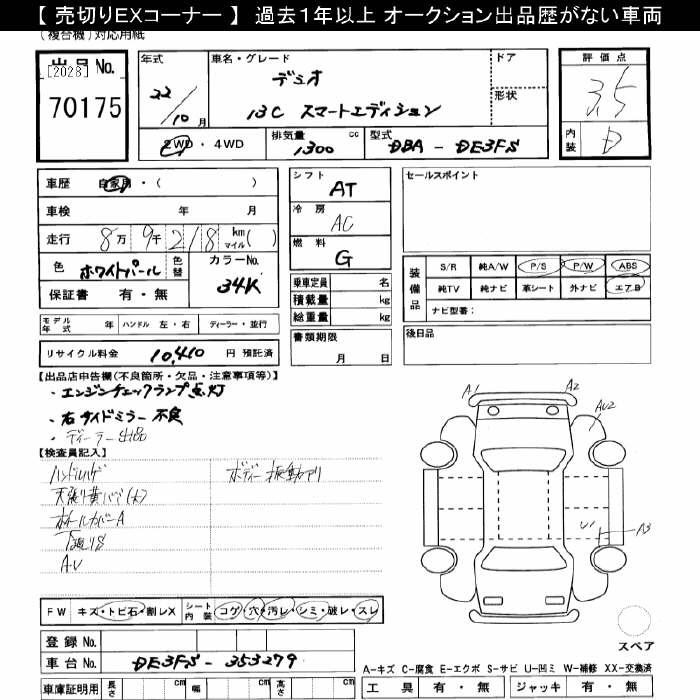 【 売切りEXコーナー 】 過去1年以上 オークション出品歴がない車両
(複合機)対応用紙
出品No.
[2028]
70175
年式
22/10月
車名・グレード
デミオ
13C スマートエディション
ドア
形状
評価点
3.5
内装
D
2WD・4WD
排気量 1300 cc
型式 DBA - DE3FS
車歴 自家用・( )
車検 年 月
走行 8万9千218 km マイル( )
色 ホワイトパール 色替
カラーNo. 34K
保証書 有・無
シフト AT
冷房 AC
燃料 G
乗車定員 名
積載量 kg
総重量 kg
書類期限
月 日
セールスポイント
装備品
S/R 純A/W P/S P/W ABS
純TV 純ナビ 革シート 外ナビ エアB
ナビ型番:
後日品
モデル年式 年 ハンドル 左・右 ディーラー・並行
リサイクル料金 10,410 円 預託済
【出品店申告欄(不良箇所・欠品・注意事項等)】
・エンジンチェックランプ点灯
・右サイドミラー不良
・ディーラー出品
【検査員記入】
ハンドルハゲ
ボディー振動アリ
ホイールカバーA
下廻りS
A・U
A1
A2
AU2
U1
A3
FW キズ・トビ石・割レX
シート内装 コゲ・穴・汚レ・シミ・破レ・スレ
登録No.
車台No. DE3FS - 353279
車庫証明用 長さ cm 幅 cm 高さ cm
スペア
A-キズ C-腐食 E-エクボ S-サビ U-凹ミ W-補修 XX-交換済
工具 有・無 ジャッキ 有・無